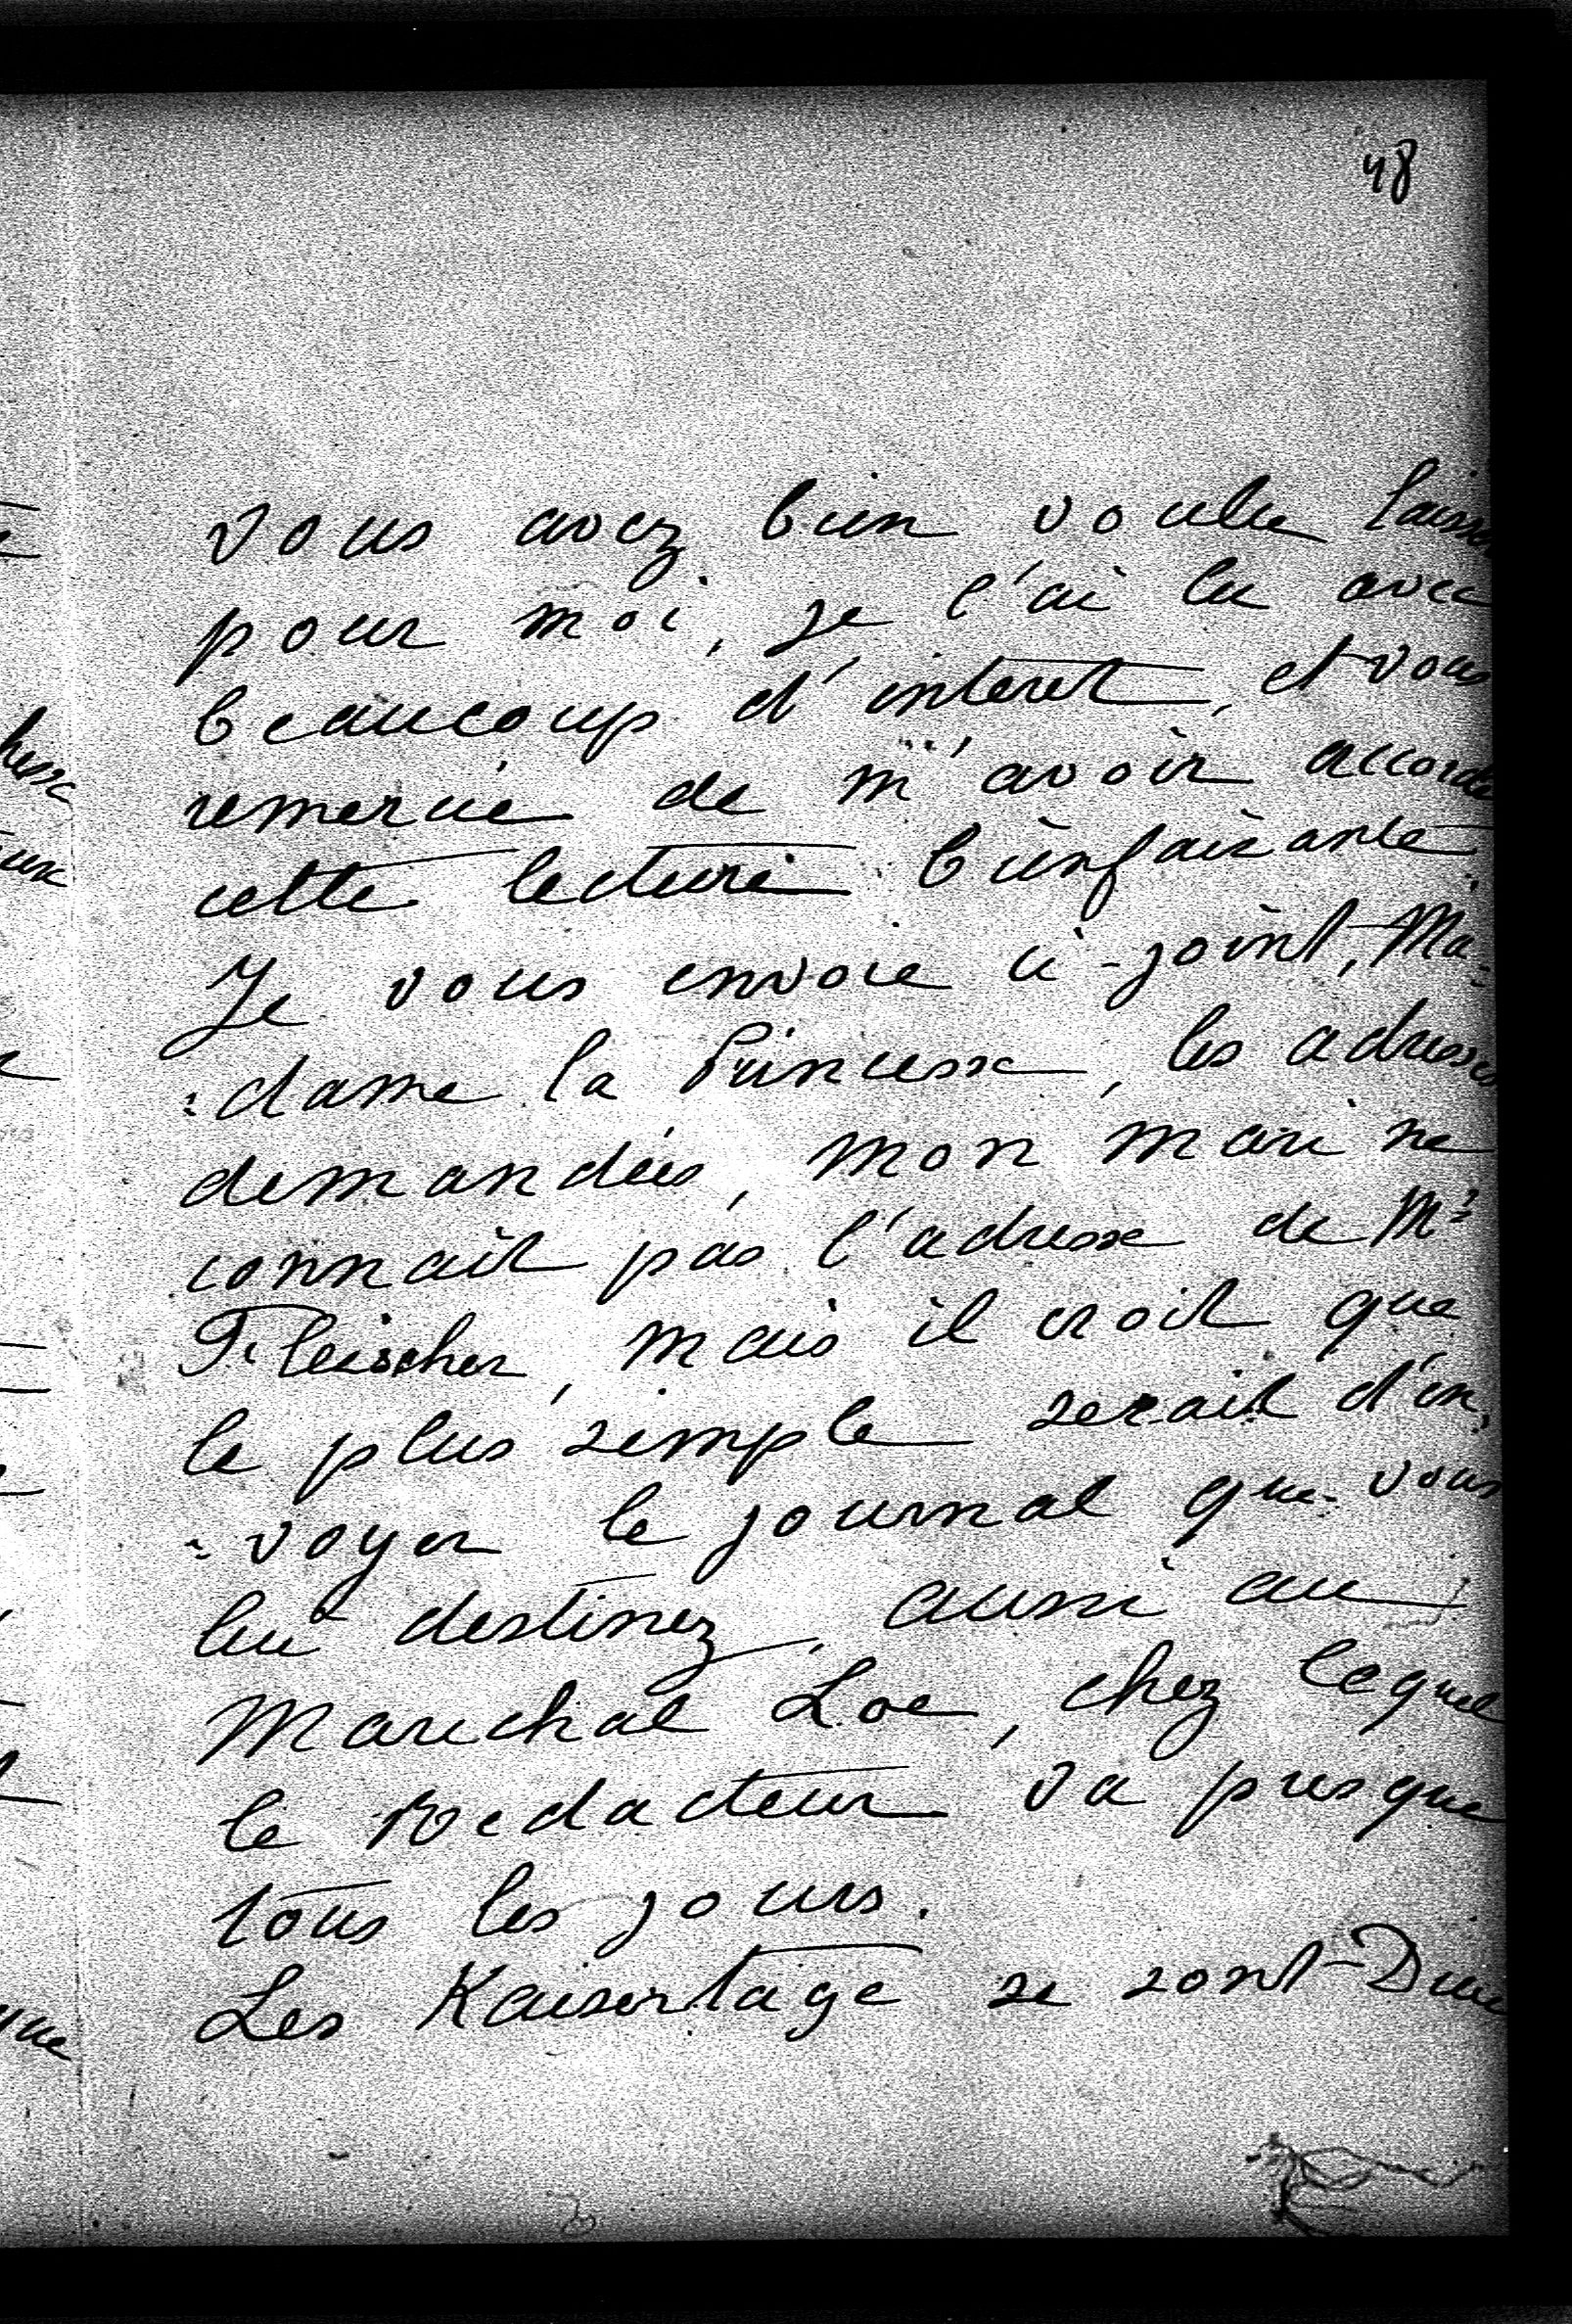 48
vous avez bien voulu laisser
pour moi, je l'ai lu avec
beaucoup d'interet, et vous
remercie de m'avoir accordé
cette lecture bienfaisante.
Je vous envoie ci-joint, Ma-
=dame la Princesse, les adresses
demandées, mon mari ne
connait pas l'adresse de Mr
Fleischer, mais il croit que
le plus simple serait d'en,
=voyer le journal que vous
lui destinez, aussi au
Marechal Loe, chez lequel
le Redacteur va presque
tous les jours.
Les Kaisertage se sont